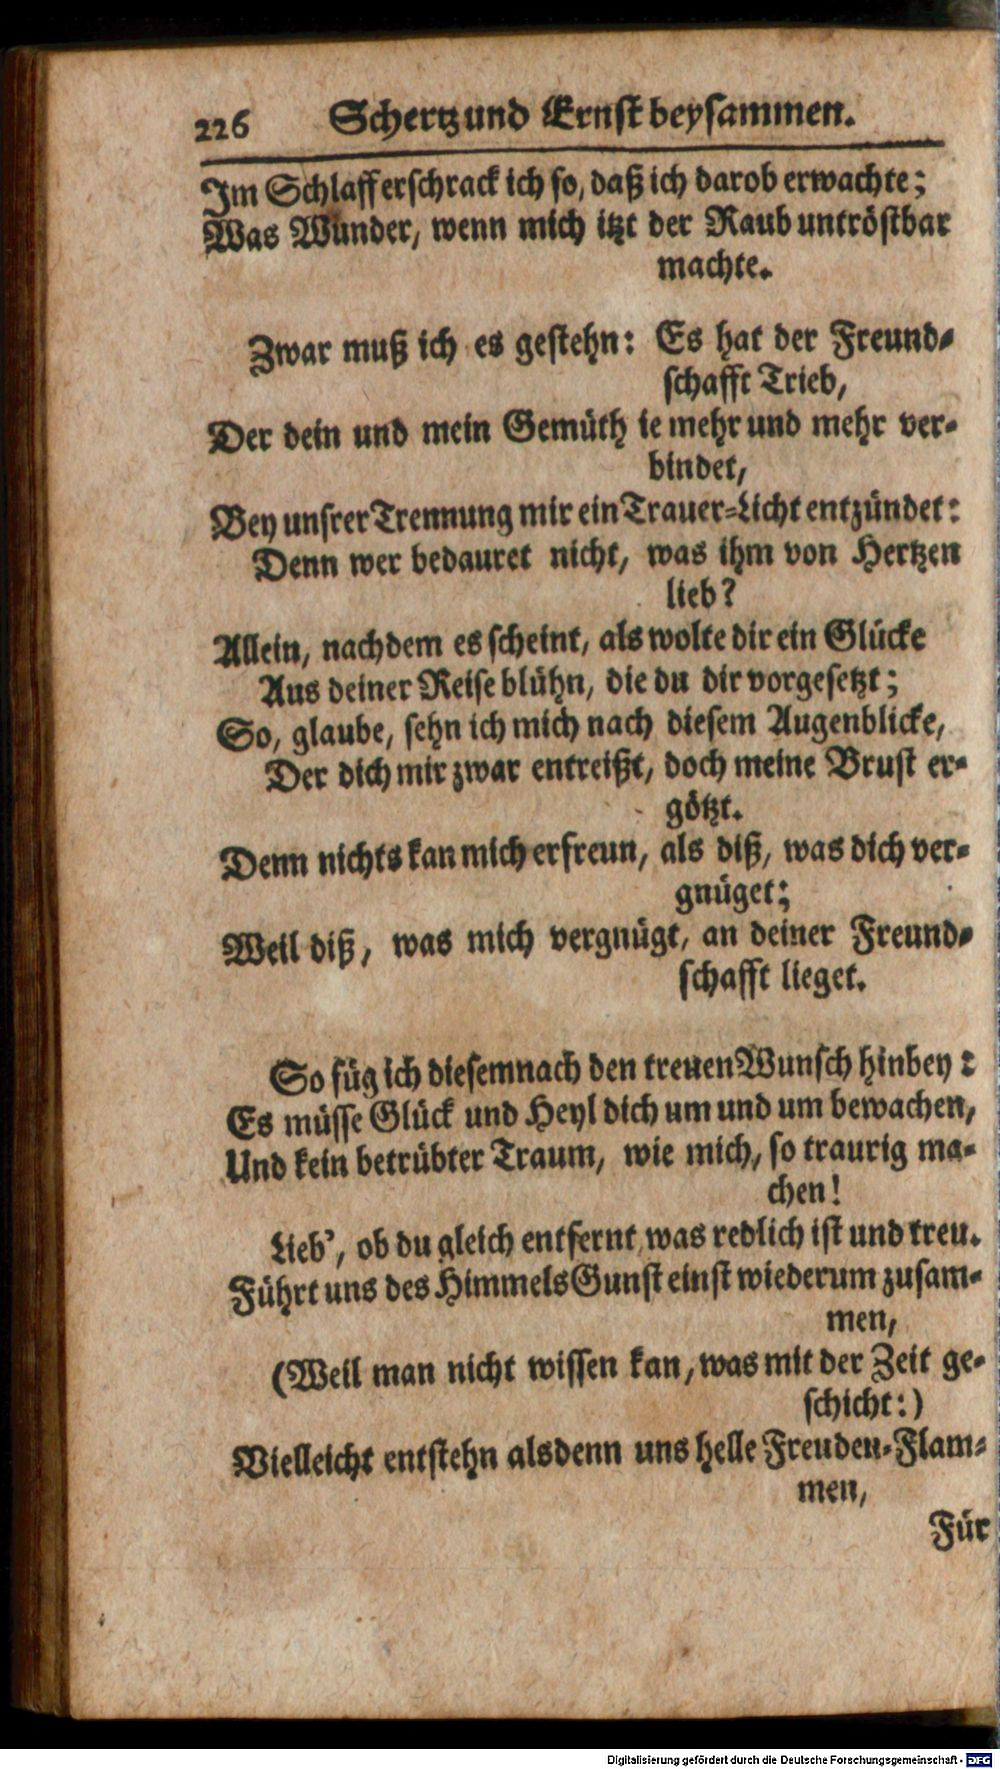 226 Schertz und Ernst beysammen.
Im Schlaff erschrack ich so, daß ich darob erwachte;
Was Wunder, wenn mich itzt der Raub untröstbar
machte.
Zwar muß ich es gestehn: Es hat der Freund-
schafft Trieb,
Der dein und mein Gemüth ie mehr und mehr ver-
bindet,
Bey unsrer Trennung mir ein Trauer-Licht entzündet:
Denn wer bedauret nicht, was ihm von Hertzen
lieb?
Allein, nachdem es scheint, als wolte dir ein Glücke
Aus deiner Reise blühn, die du dir vorgesetzt;
So, glaube, sehn ich mich nach diesem Augenblicke,
Der dich mir zwar entreißt, doch meine Brust er-
götzt.
Denn nichts kan mich erfreun, als diß, was dich ver-
gnüget;
Weil diß, was mich vergnügt, an deiner Freund-
schafft lieget.
So füg ich diesemnach den treuen Wunsch hinbey:
Es müsse Glück und Heyl dich um und um bewachen,
Und kein betrübter Traum, wie mich, so traurig ma-
chen!
Lieb', ob du gleich entfernt, was redlich ist und treu.
Führt uns des Himmels Gunst einst wiederum zusam-
men,
(Weil man nicht wissen kan, was mit der Zeit ge-
schicht:)
Vielleicht entstehn alsdenn uns helle Freuden-Flam-
men,
Für
Digitalisierung gefördert durch die Deutsche Forschungsgemeinschaft - DFG